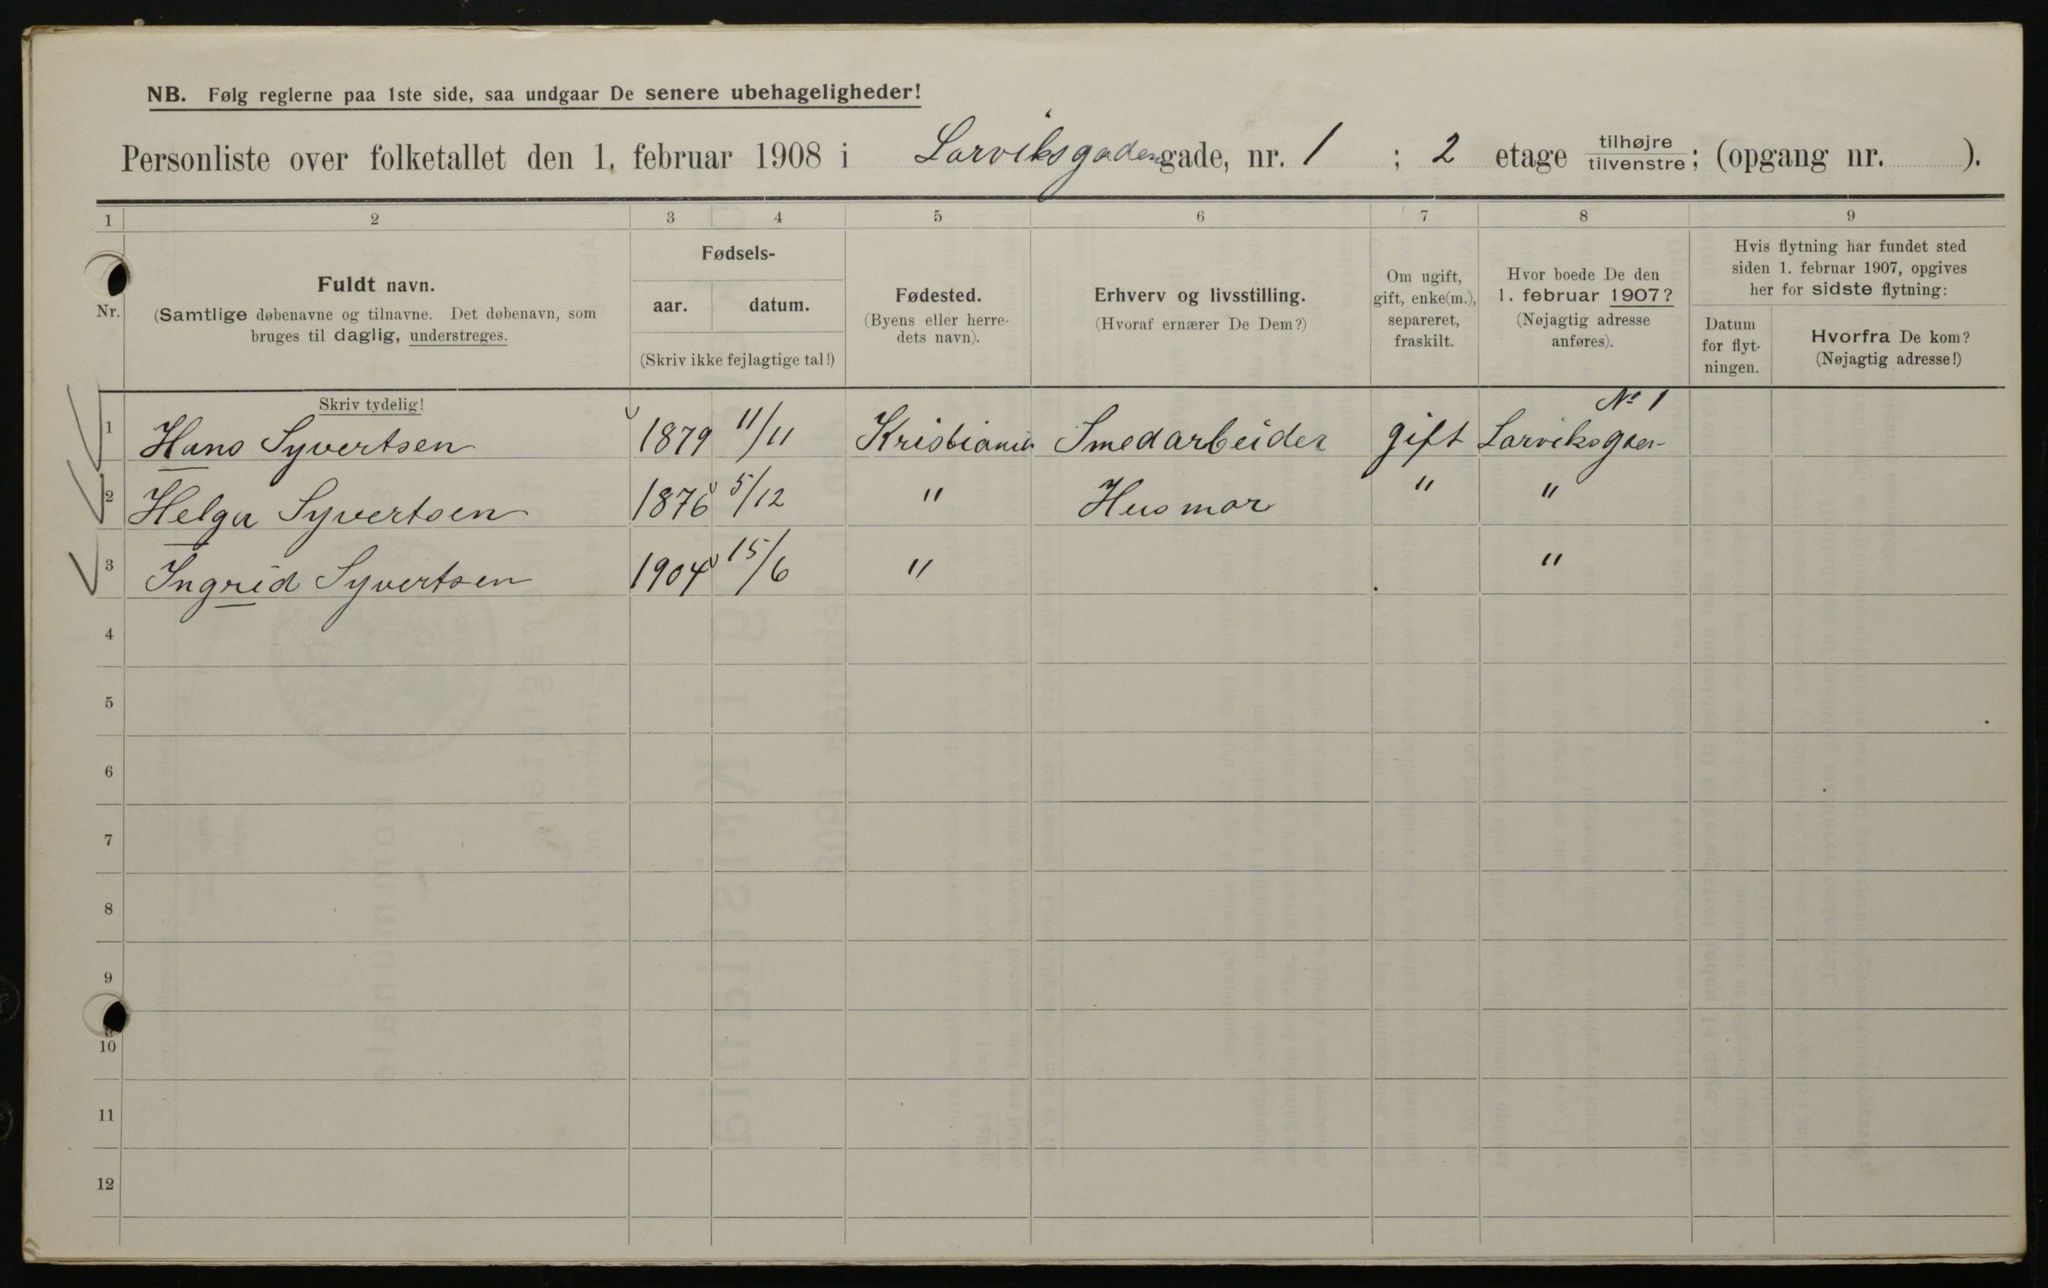 NB. Følg reglerne paa 1ste side, saa undgaar De senere ubehageligheder!
Personliste over folketallet den 1. februar 1908 i Larviksgaden gade, nr. 1 ; 2 etage tilhøjre tilvenstre ; (opgang nr. ).
1 2 3 4 5 6 7 8 9
Nr.
Fuldt navn.
(Samtlige døbenavne og tilnavne. Det døbenavn, som
bruges til daglig, understreges.
Skriv tydelig!
Fødsels-
aar. datum.
(Skriv ikke fejlagtige tal!)
Fødested.
(Byens eller herre-
dets navn).
Erhverv og livsstilling.
(Hvoraf ernærer De Dem?)
Om ugift,
gift, enke(m.),
separeret,
fraskilt.
Hvor boede De den
1. februar 1907?
(Nøjagtig adresse
anføres).
Hvis flytning har fundet sted
siden 1. februar 1907, opgives
her for sidste flytning:
Datum
for flyt-
ningen.
Hvorfra De kom?
(Nøjagtig adresse!)
No 1
1 Hans Syvertsen 1879 11/11 Kristiania Smedarbeider gift Larviksgaen-
2 Helga Syvertsen 1876 5/12 " Husmor " "
3 Ingrid Syvertsen 1904 15/6 " "
4
5
6
7
8
9
10
11
12